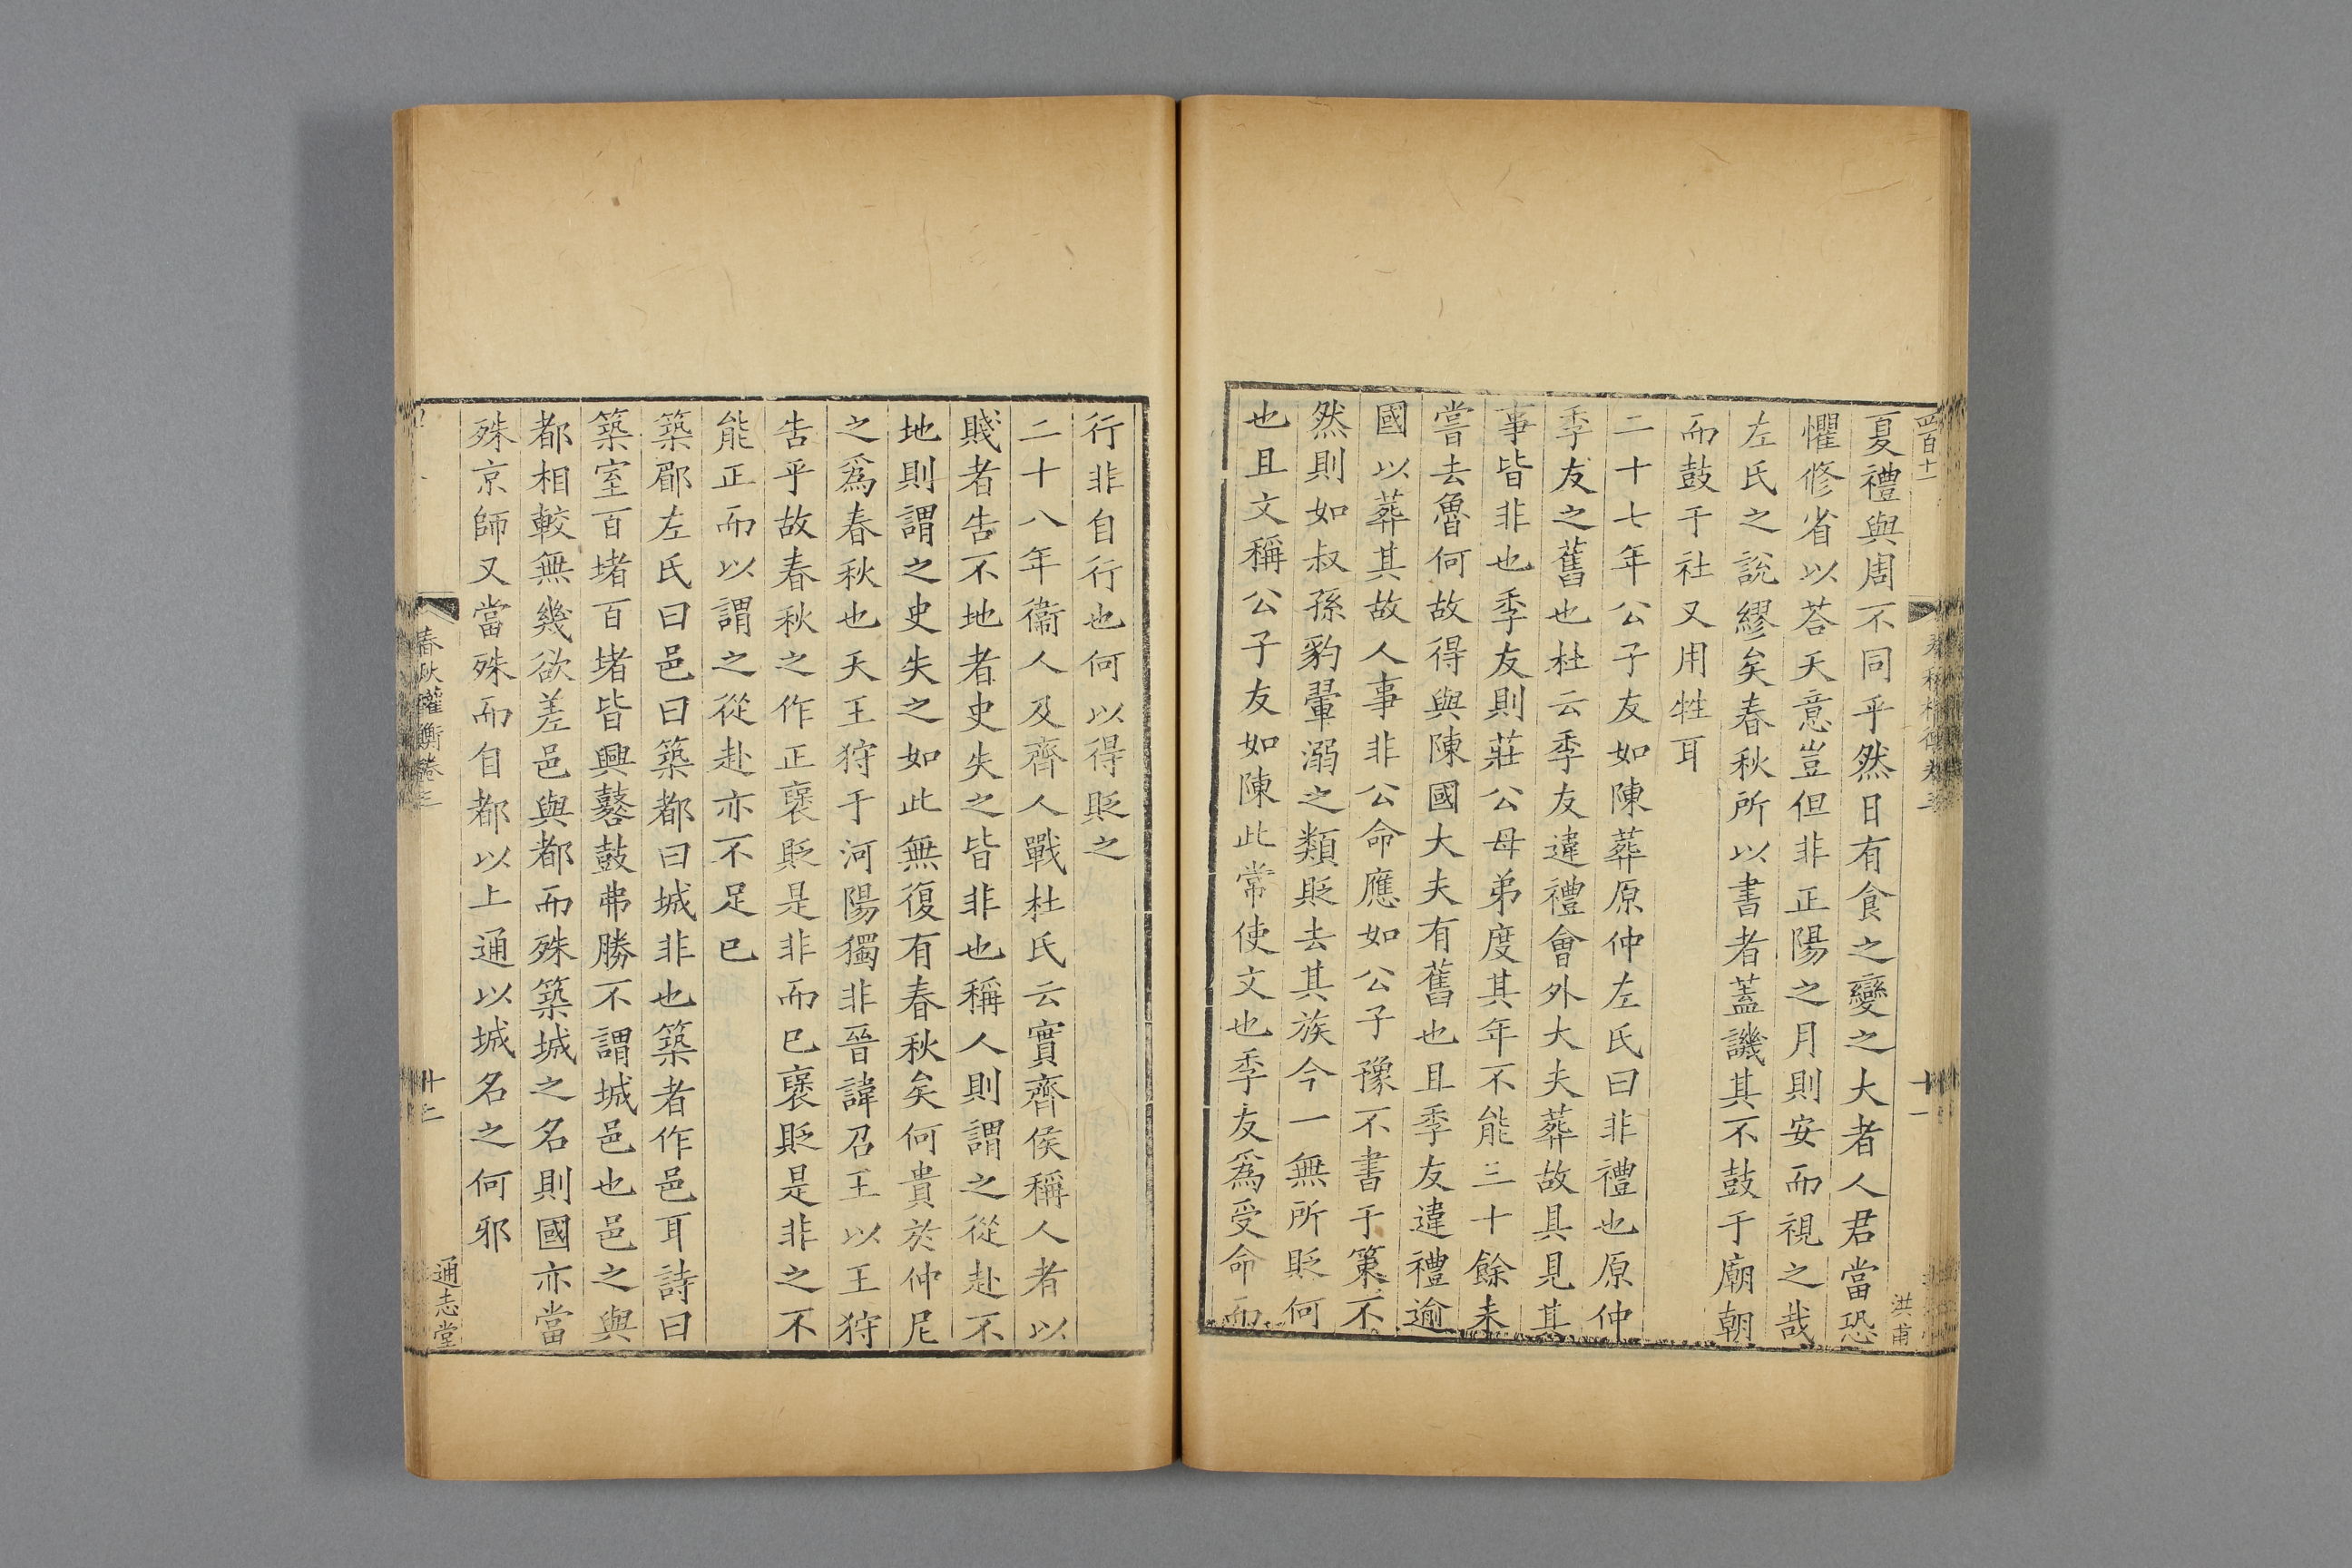 四百十一
夏禮與周不同乎然日有食之變之大者人君當恐
懼修省以荅天意豈但非正陽之月則安而視之哉
左氏之說繆矣春秋所以書者蓋譏其不鼓于廟朝
而鼓于社又用牲耳
二十七年公子友如陳葬原仲左氏曰非禮也原仲
季友之舊也杜云季友違禮會外大夫葬故具見其
事皆非也季友則莊公母弟度其年不能三十餘未
嘗去魯何故得與陳國大夫有舊也且季友違禮逾
國以葬其故人事非公命應如公子豫不書于策不
然則如叔孫豹翬溺之類貶去其族今一無所貶何
也且文稱公子友如陳此常使文也季友爲受命而
十一
洪甫
行非自行也何以得貶之
二十八年衞人及齊人戰杜氏云實齊侯稱人者以
賤者告不地者史失之皆非也稱人則謂之從赴不
地則謂之史失之如此無復有春秋矣何貴於仲尼
之爲春秋也天王狩于河陽獨非晉諱召王以王狩
告乎故春秋之作正襃貶是非而已襃貶是非之不
能正而以謂之從赴亦不足已
築郿左氏曰邑曰築都曰城非也築者作邑耳詩曰
築室百堵百堵皆興鼛鼓弗勝不謂城邑也邑之與
都相較無幾欲差邑與都而殊築城之名則國亦當
殊京師又當殊而自都以上通以城名之何邪
春秋權衡卷三
十二
通志堂